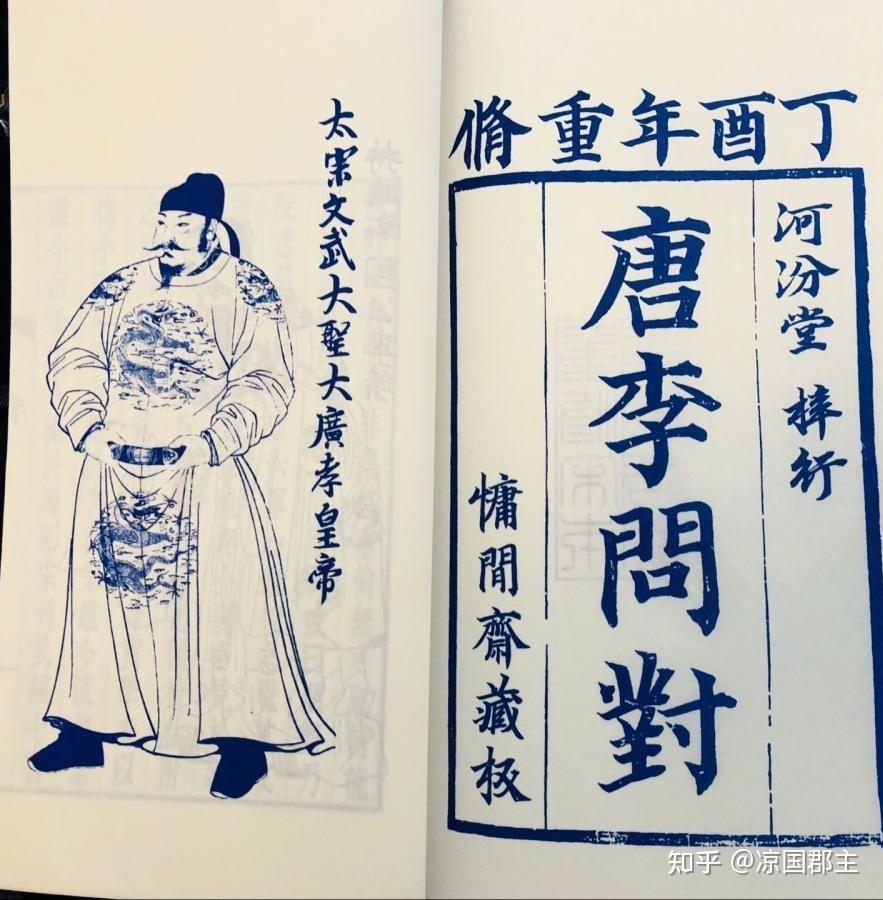 丁酉年重脩
河汾堂 梓行
唐李問對
慵閒齋藏板
太宗文武大聖大廣孝皇帝
知乎 @凉国郡主